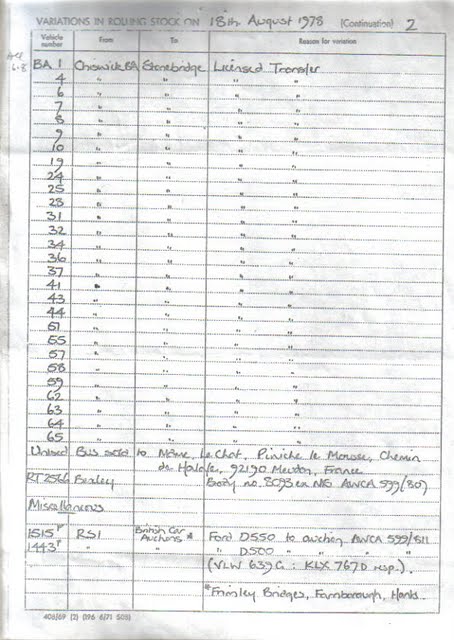 VARIATIONS IN ROLLING STOCK ON 18th August 1978 (Continuation) 2
Vehicle number From To Reason for variation
BA 1 Chiswick BA Stonebridge Licensed Transfer
4 " " " "
6 " " " "
7 " " " "
8 " " " "
9 " " " "
10 " " " "
19 " " " "
24 " " " "
25 " " " "
28 " " " "
31 " " " "
32 " " " "
34 " " " "
36 " " " "
37 " " " "
41 " " " "
43 " " " "
44 " " " "
51 " " " "
55 " " " "
57 " " " "
58 " " " "
59 " " " "
62 " " " "
63 " " " "
64 " " " "
65 " " " "
Unlised Bus sold to Mdme. Le Chat, Piniche le Mouse, Chemin
de 92190 Meudon, France
Bexley Body no. 8093 ex NS AWCA 599/807
Miscellaneous
1515P RS1 British Car Auctions * Ford D550 to auction AWCA 599/811
1443P " " " D500 " " " "
(VLW 639G : KLX 767D resp.).
*Frimley Bridges, Farnborough, Hants.
406/69 (2) (396 6/71 SOS)